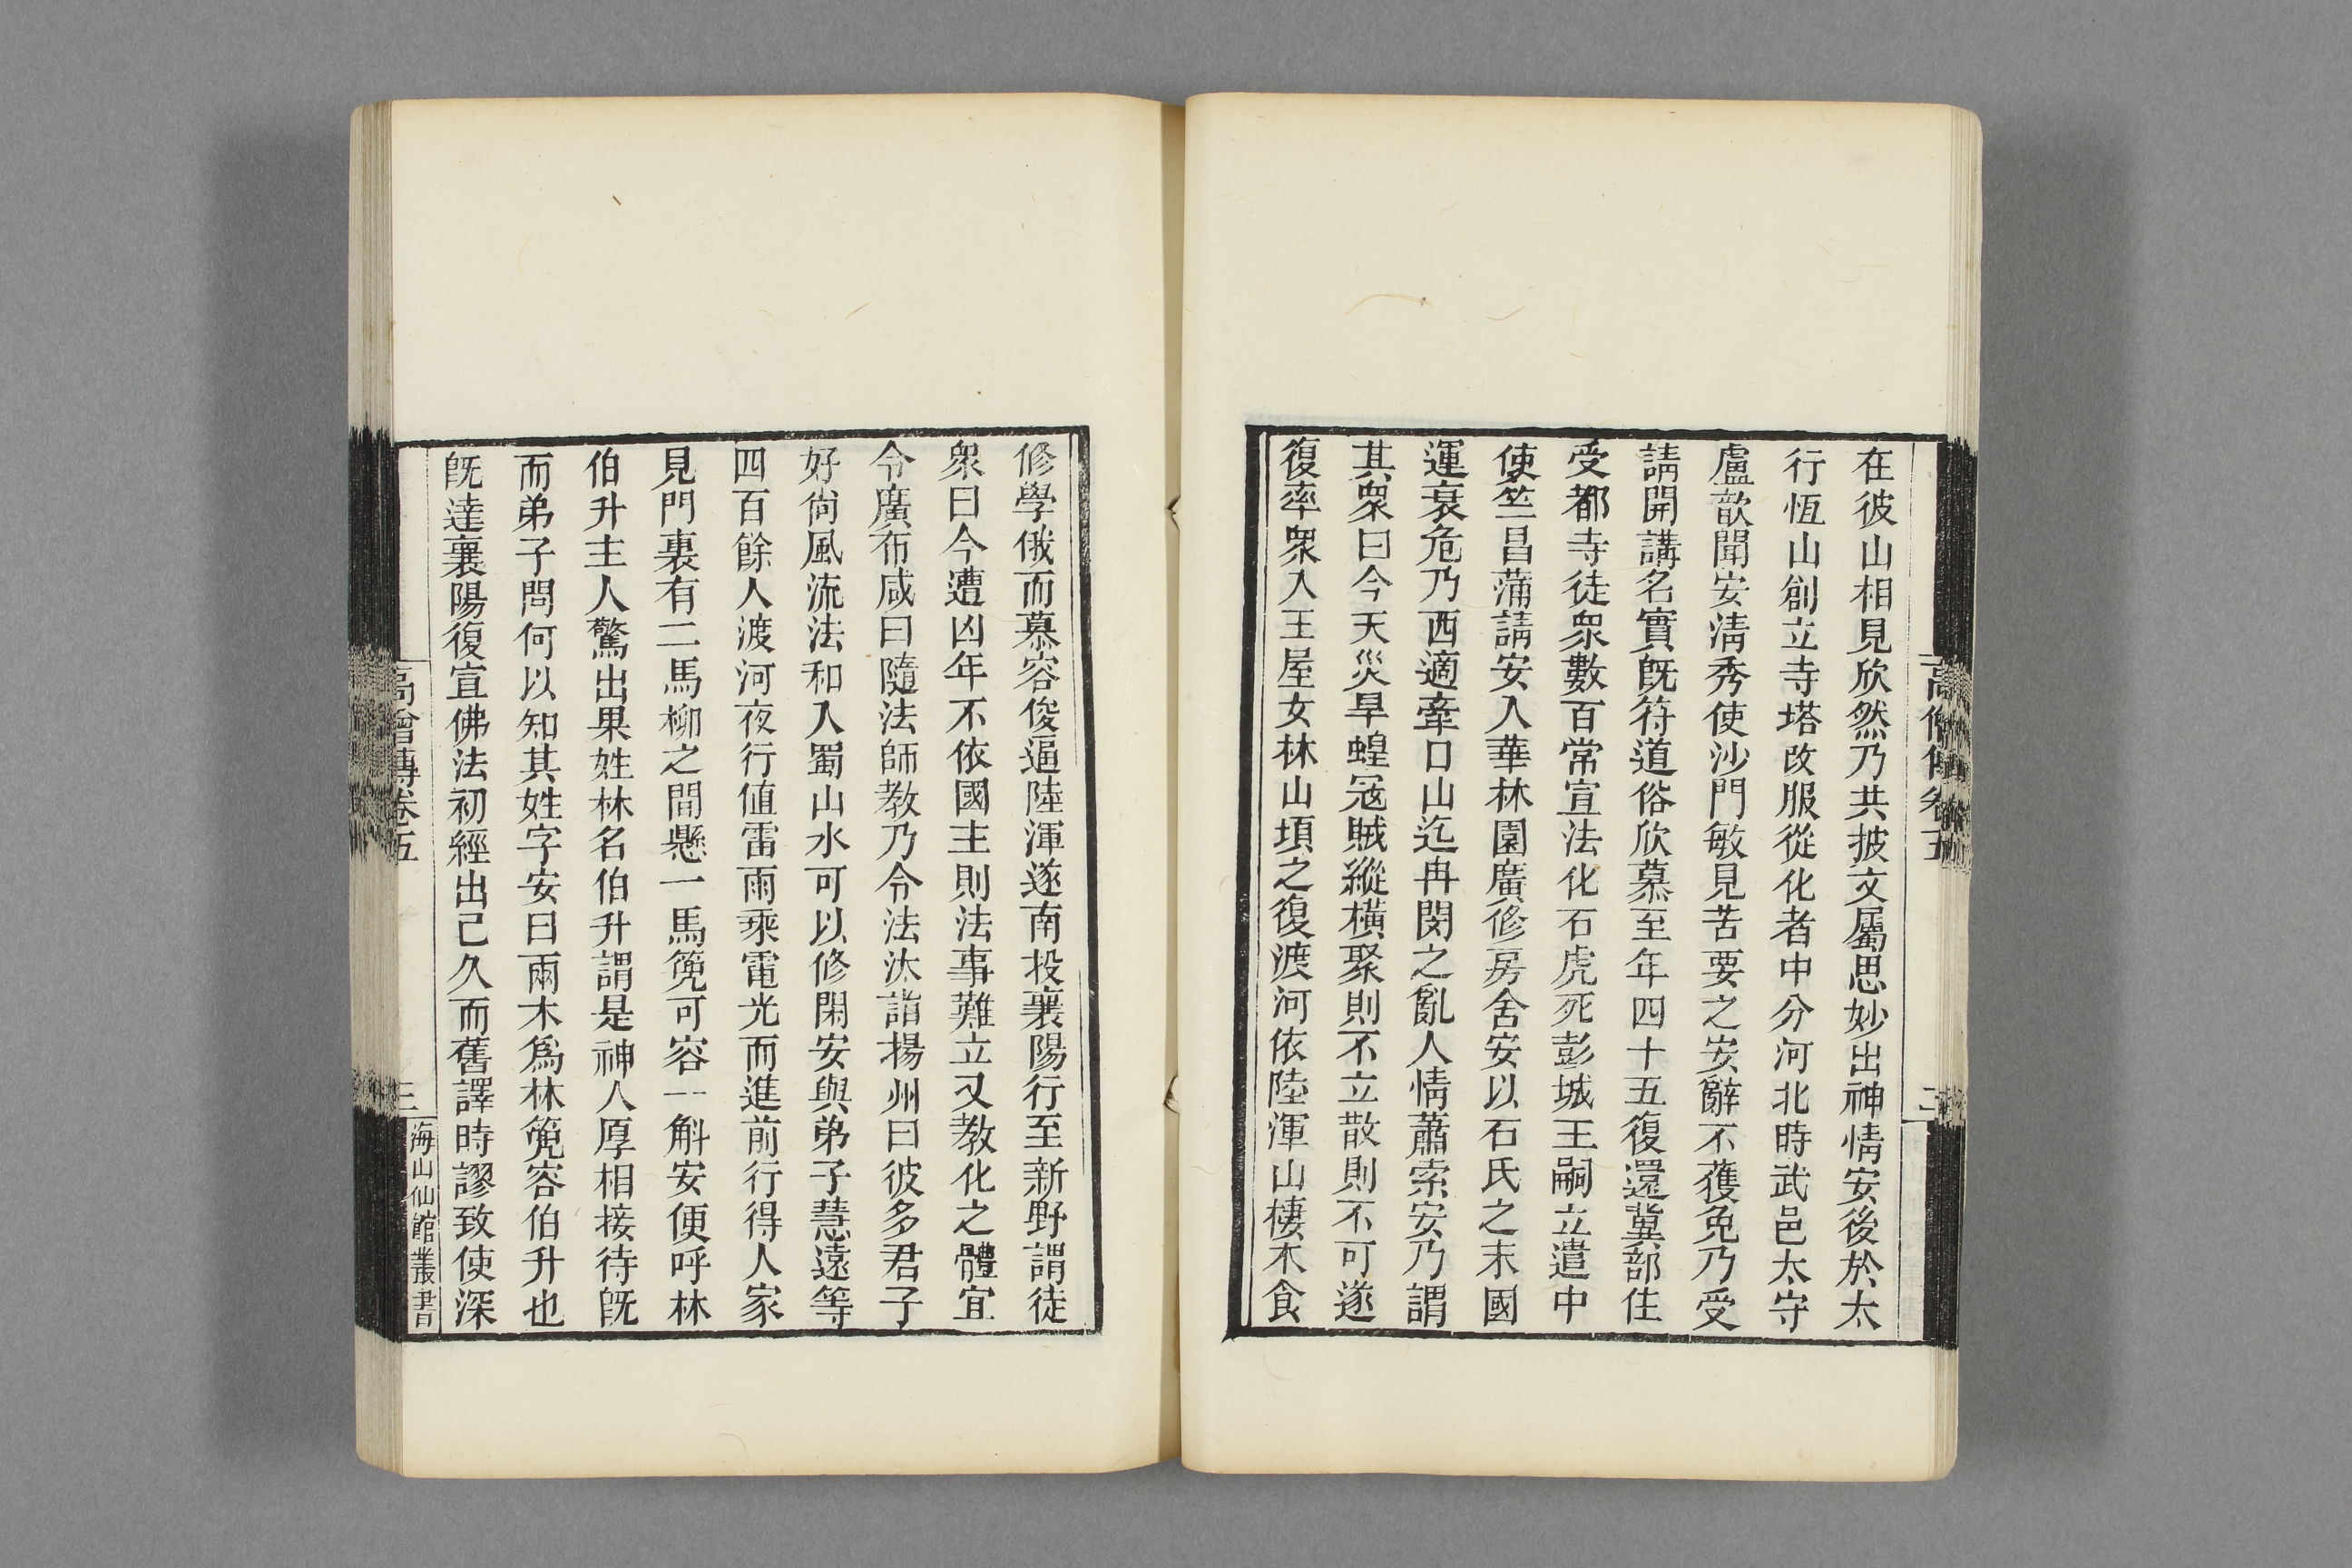 在彼山相見欣然乃共披文屬思妙出神情安後於太
行恆山創立寺塔改服從化者中分河北時武邑太守
盧歆聞安清秀使沙門敏見苦要之安辭不獲免乃受
請開講名實旣符道俗欣慕至年四十五復還冀部住
受都寺徒衆數百常宣法化石虎死彭城王嗣立遣中
使竺昌蒲請安入華林園廣修房舍安以石氏之末國
運衰危乃西適牽口山迄冉閔之亂人情蕭索安乃謂
其衆曰今天災旱蝗冦賊縱橫聚則不立散則不可遂
復率衆入王屋女林山頃之復渡河依陸渾山棲木食
修學俄而慕容俊逼陸渾遂南投襄陽行至新野謂徒
衆曰今遭凶年不依國主則法事難立又教化之體宜
令廣布咸曰隨法師教乃令法汰詣揚州曰彼多君子
好尙風流法和入蜀山水可以修閑安與弟子慧遠等
四百餘人渡河夜行値雷雨乘電光而進前行得人家
見門裏有二馬柳之間懸一馬篼可容一斛安便呼林
伯升主人驚出果姓林名伯升謂是神人厚相接待旣
而弟子問何以知其姓字安曰兩木爲林篼容伯升也
旣達襄陽復宣佛法初經出已久而舊譯時謬致使深
高僧傳卷五
三
海山仙館叢書